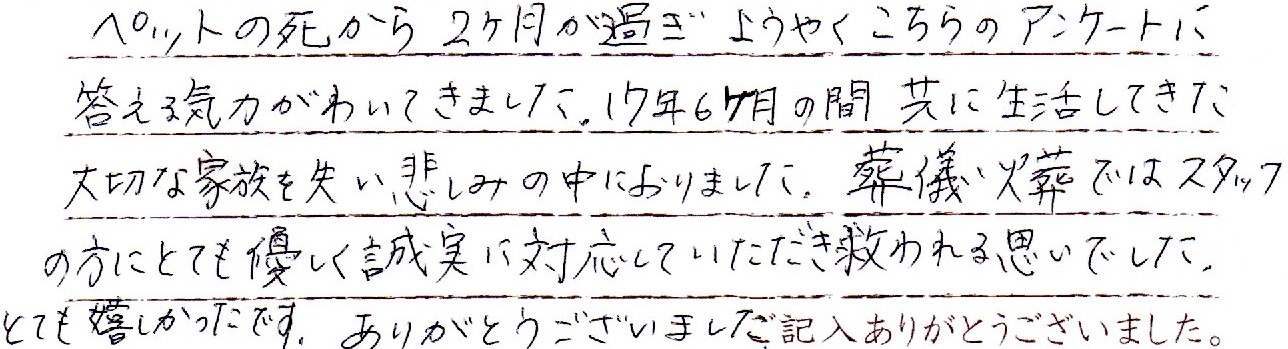 ペットの死から2ケ月が過ぎようやくこちらのアンケートに
答える気力がわいてきました。17年6ケ月の間 共に生活してきた
大切な家族を失い悲しみの中におりました。葬儀、火葬ではスタッフ
の方にとても優しく誠実に対応していただき救われる思いでした。
とても嬉しかったです。ありがとうございました ご記入ありがとうございました。